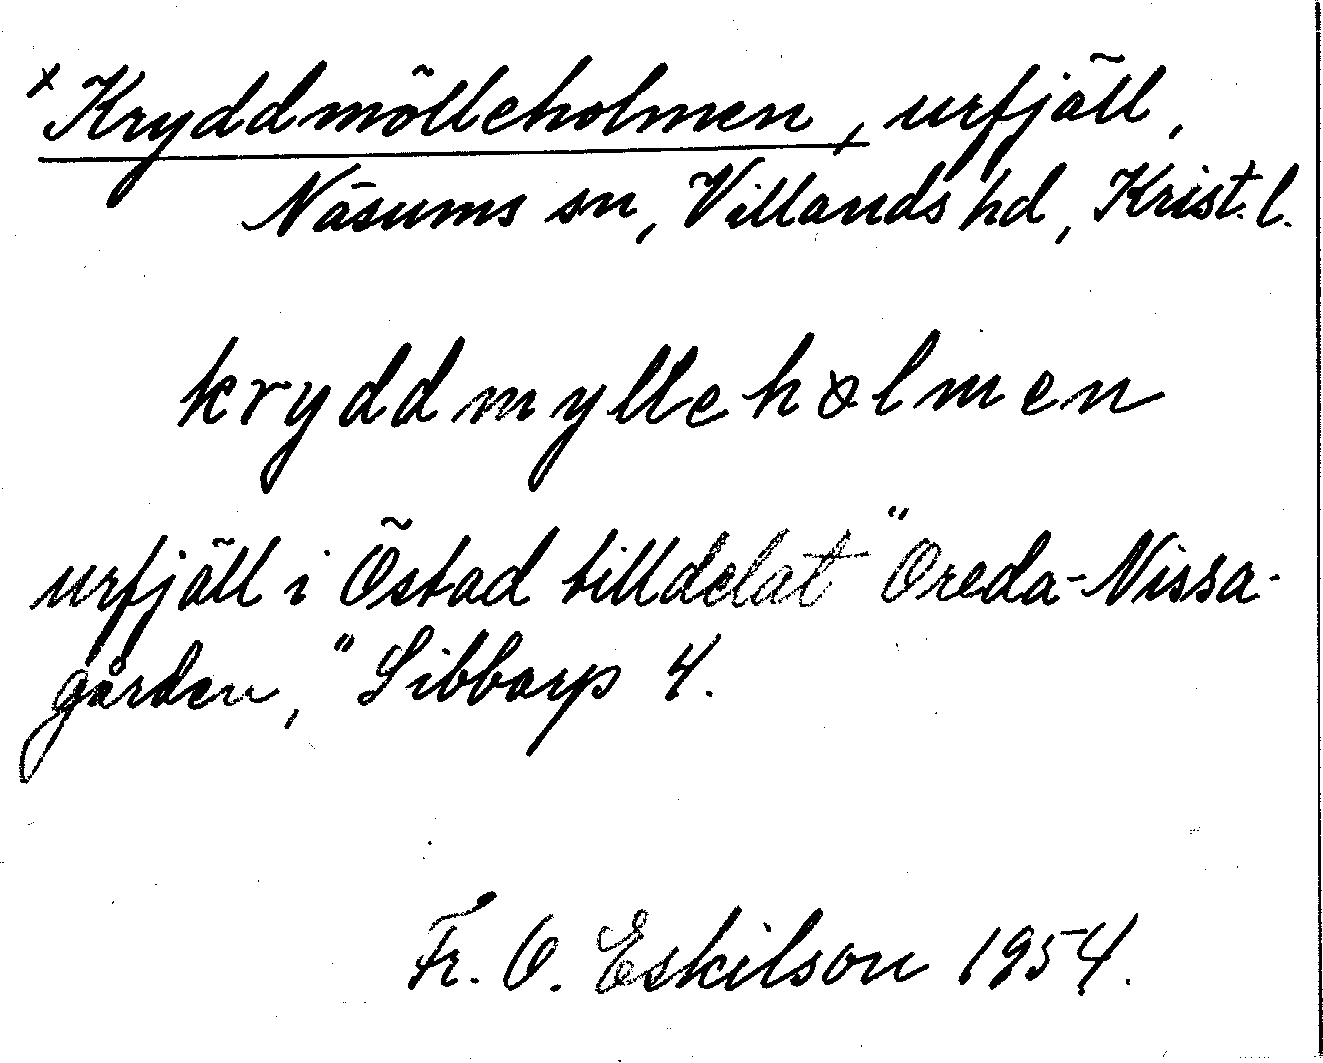 x Kryddmölleholmen, urfjäll,
Näsums sn, Villands hd, Krist. l.
kryddmylleholmen
urfjäll i Östad tilldelat "Oreda-Nissa-
gården," Sibbarp 4.
Fr. O. Eskilson 1954.